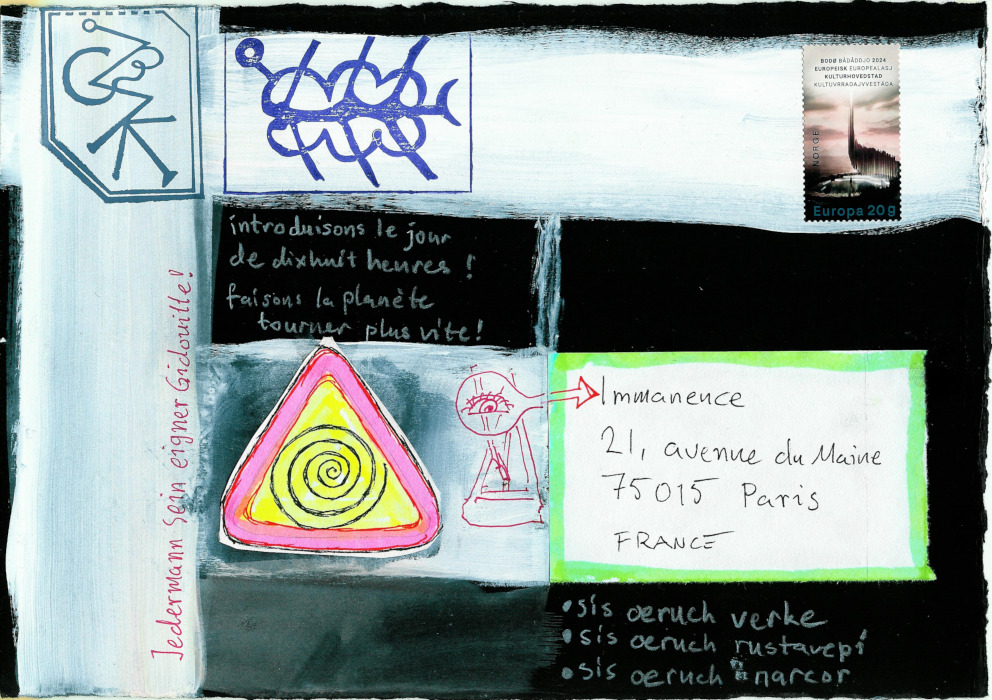 BODØ BÅDÅDDJO 2024
EUROPEISK EUROPEALASJ
KULTURHOVEDSTAD
KULTUVRRAOAJVVESTÁDA
NORGE
Europa 20g
introduisons le jour
de dixhuit heures !
faisons la planète
tourner plus vite!
Jedermann Sein eigner Gidouille!
Immanence
21, avenue du Maine
75015 Paris
FRANCE
• sis oeruch verke
• sis oeruch rustavepi
• sis oeruch narcor